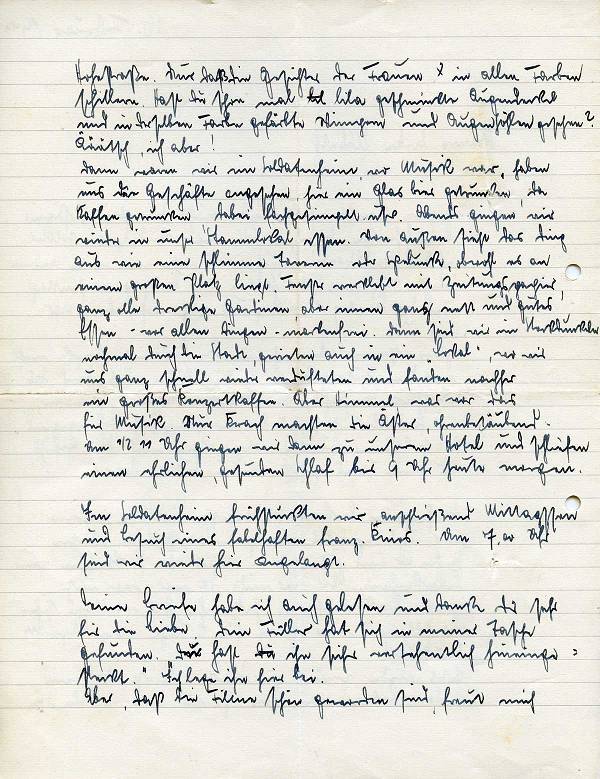 Hohestraße. Nur daß die Gesichter der Frauen in allen Farben
schillern. Hast Du schon mal lila geschminkte Augendeckel
und in derselben Farbe gefärbte Wimpern und Augenhöhlen gesehen?
Ääätsch, ich aber!
Dann waren wir im Soldatenheim, wo Musik war, haben
uns die Geschäfte angesehen, hier ein Glas Bier getrunken, da
Kaffee getrunken dabei usw. Abends gingen wir
wieder in unser Stammlokal essen. Von außen sieht das Ding
aus wie eine schlimme Taverne oder Spelunke, obwohl es an
einem großen Platz liegt. Fenster verklebt mit Zeitungspapier,
ganz olle dreckige Gardinen, aber innen ganz nett und gutes
Essen - vor allen Dingen - markenfrei. Dann sind wir im Stockdunkeln
nochmal durch die Stadt, gerieten auch in ein "Lokal", wo wir
uns ganz schnell wieder verdufteten und fanden nachher
ein großes Konzertkaffee. Aber Himmel, was war das
für Musik. Nur Krach machten die Äster, ohrenbetäubend.
Um 1/2 11 Uhr gingen wir dann zu unserem Hotel und schliefen
einen ehrlichen, gesunden Schlaf bis 9 Uhr heute morgen.
Im Soldatenheim frühstückten wir, anschließend Mittagessen
und Besuch eines fabelhaften franz. Kinos. Um 7,00 Uhr
sind wir wieder hier angelangt.
Deine Briefe habe ich auch gelesen und danke Dir sehr
für die Liebe. Dein Füller hat sich in meiner Tasche
gefunden. Du hast ihn sicher versehentlich hineinge=
steckt. Ich lege ihn hier bei.
Aber, daß die Filme schön geworden sind, freut mich